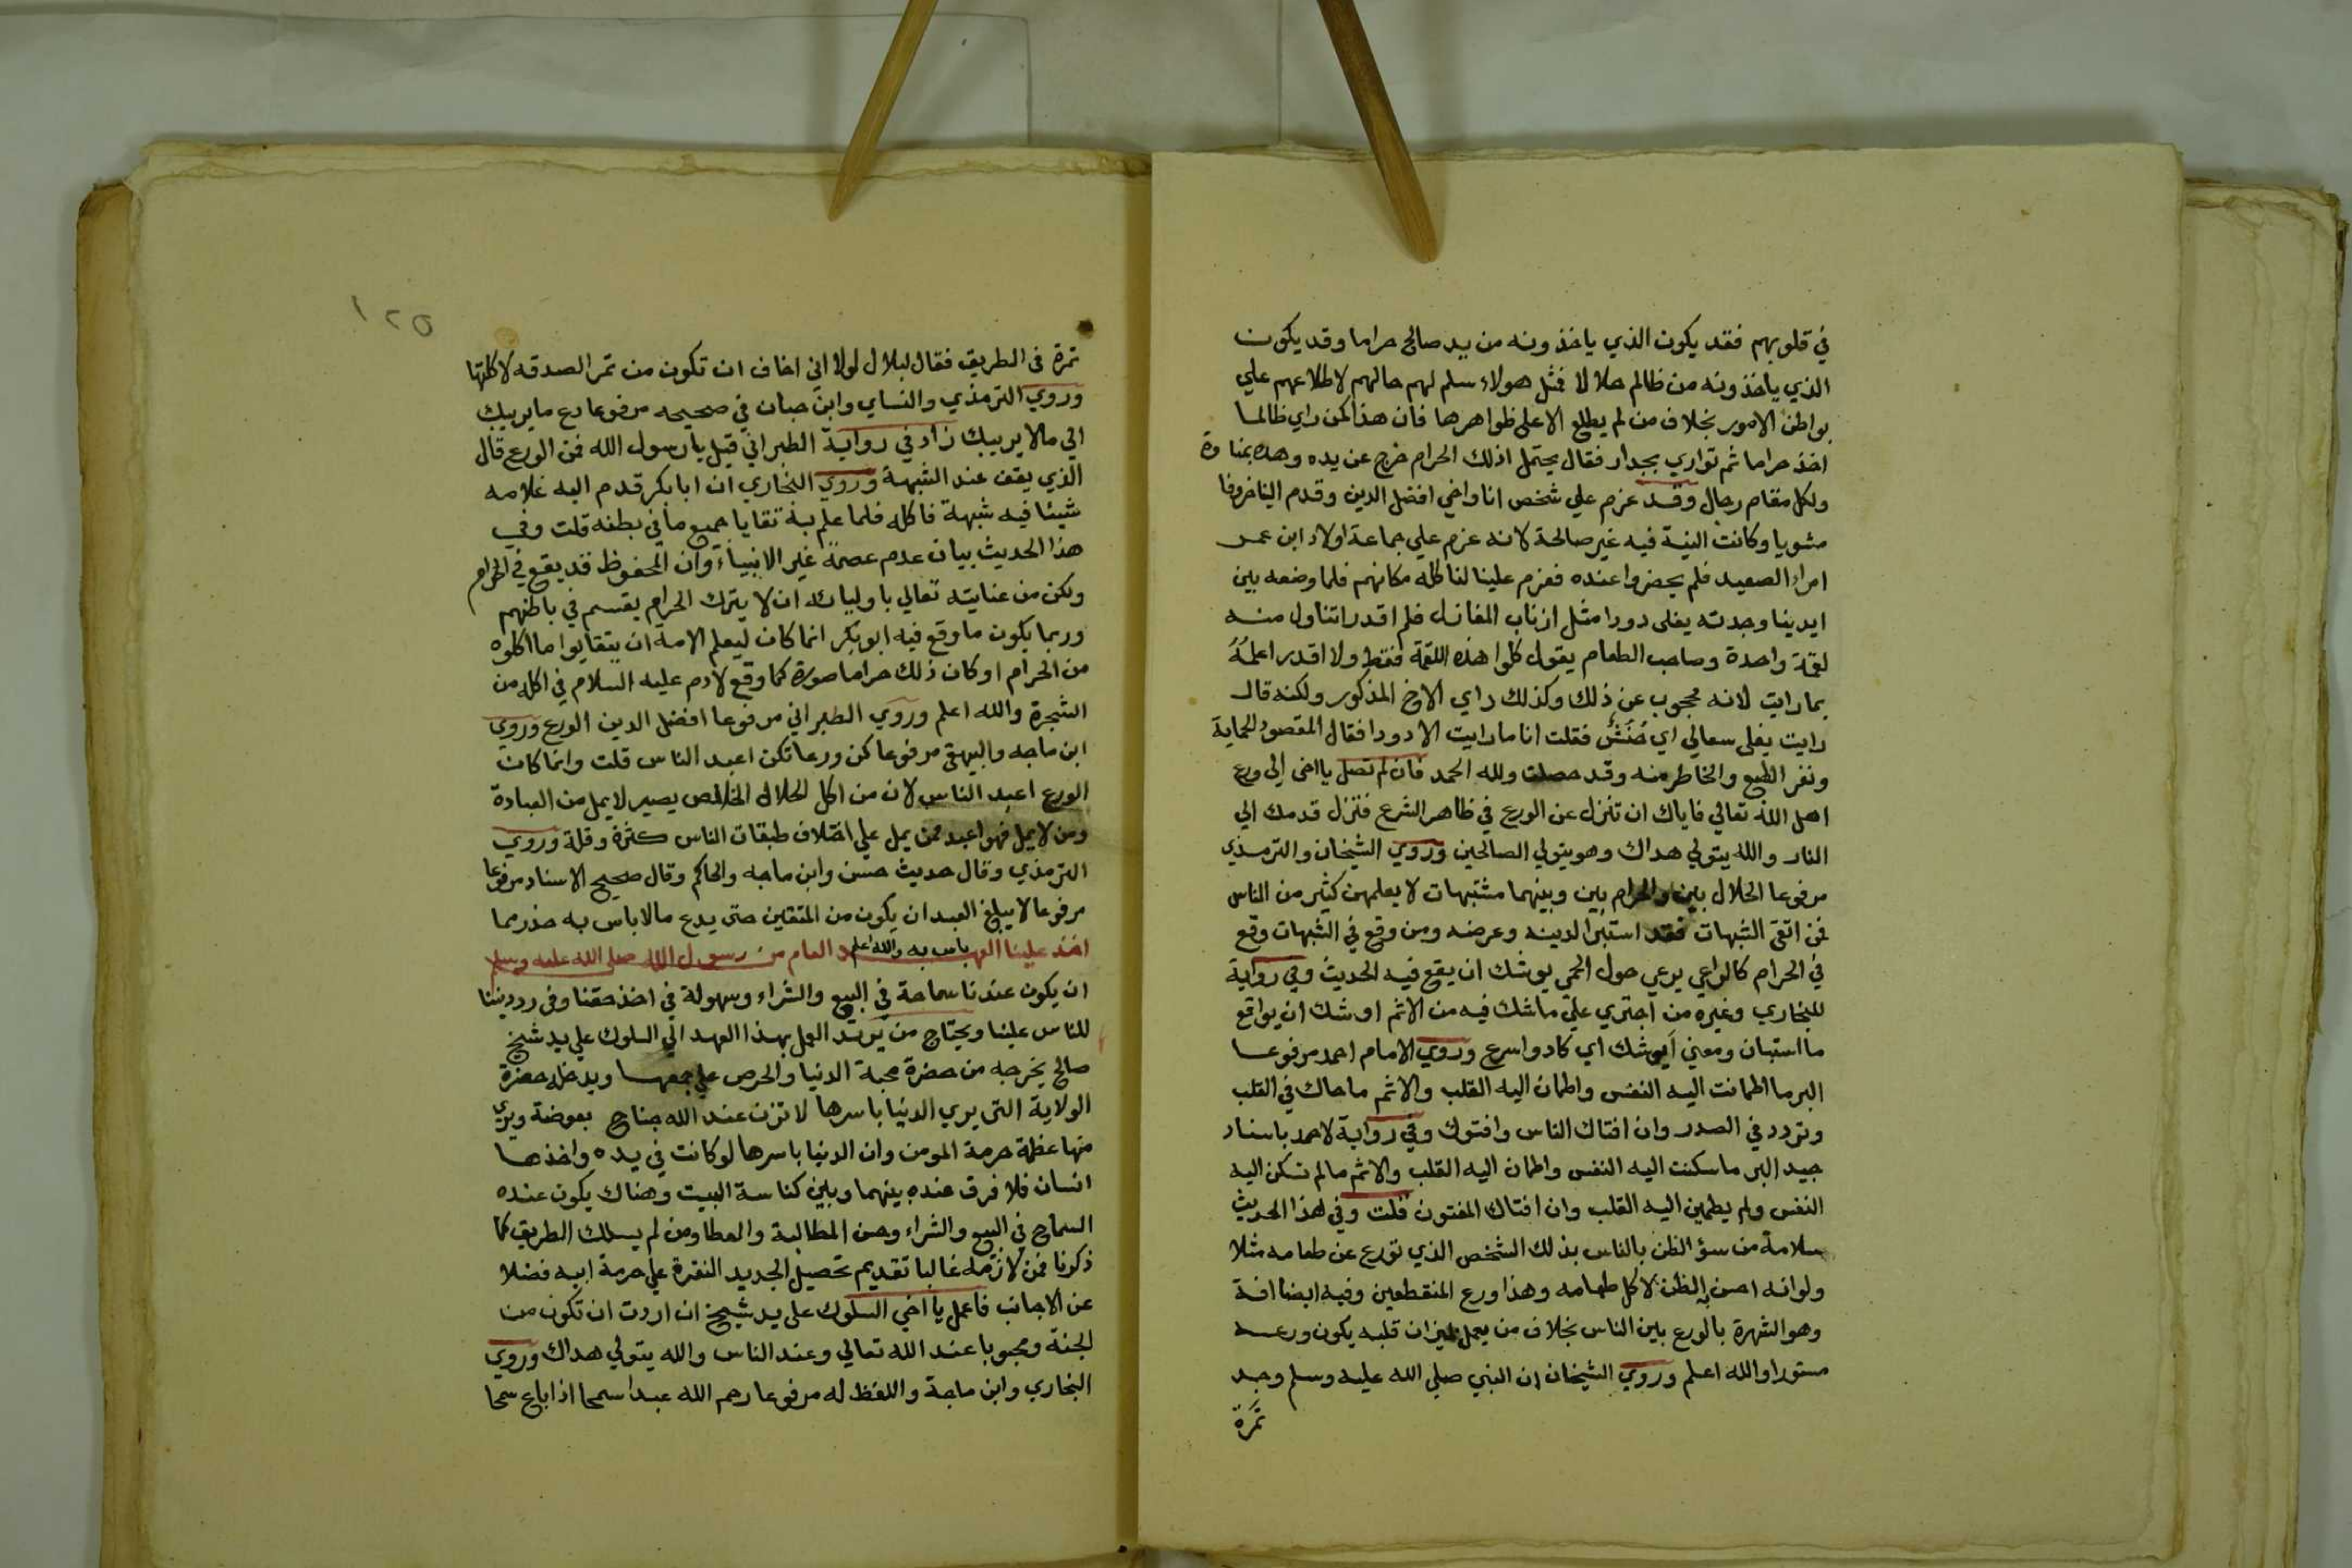 في قلوبهم فقد يكون الذي ياخذونه من يد صالح حراما وقد يكون
الذي ياخذونه من ظالم حلالا فمثل هولاء سلم لهم حالهم لاطلاعهم علي
بواطن الامور بخلاف من لم يطلع الا على ظواهرها فان هذا كمن راي ظالما
اخذ حراما ثم تواري بجدار فقال يحتمل ان ذلك الحرام خرج عن يده وهده
ولكل مقام رجال وقد عزم علي شخص انا واخي افضل الدين وقدم الينا خروفا
مشويا وكانت النية فيه غير صالحة لانه عزم علي جماعة اولاد ابن عمر
امراء الصعيد فلم يحضروا عنده فعزم علينا لناكله مكانهم فلما وضعه بين
ايدينا وجدته يغلى دودا مثل اذناب المغازل فلم اقدر اتناول منه
لقمة واحدة وصاحب الطعام يقول كلوا هذه اللقمة فقط ولا اقدر اعلمُهُ
بما رايت لانه محجوب عن ذلك وكذلك راي الاخ المذكور ولكنه قال
رايت يغلى سعالي اي فقلت انا ما رايت الا دودا فقال المقصود الحماية
ونفر الطبع والخاطر منه وقد حصلت ولله الحمد فان لم تصل يا اخى الى ورع
اهل الله تعالي فاياك ان تنزل عن الورع في ظاهر الشرع فتزل قدمك الي
النار والله يتولي هداك وهو يتولي الصالحين وروي الشيخان والترمذي
مرفوعا الحلال بين والحرام بين وبينهما مشتبهات لا يعلمهن كثير من الناس
فمن اتقى الشبهات فقد استبرا لدينه وعرضه ومن وقع في الشبهات وقع
في الحرام كالراعي يرعي حول الحمي يوشك ان يقع فيه الحديث وفي رواية
للبخاري وغيره من اجتري علي ما شك فيه من الاثم اوشك ان يواقع
ما استبان ومعني يوشك اي كاد واسرع وروي الامام احمد مرفوعا
البر ما اطمانت اليه النفس واطمان اليه القلب والاثم ما حاك في القلب
وتردد في الصدر وان افتاك الناس وافتوك وفي رواية لاحمد باسناد
جيد البر ما سكنت اليه النفس واطمان اليه القلب والاثم ما لم تسكن اليه
النفس ولم يطمين اليه القلب وان افتاك المفتون قلت وفي هذا الحديث
سلامة من سؤ الظن بالناس بذلك الشخص الذي تورع عن طعامه مثلا
ولو انه احسن به الظن لاكل طعامه وهذا ورع المنقطعين وفيه ايضا افة
وهو الشهرة بالورع بين الناس بخلاف من يعمل بميزان قلبه يكون ورعه
مستورا والله اعلم وروي الشيخان ان النبي صلي الله عليه وسلم وجد
تمرة
١٢٥
تمرة في الطريق فقال لبلال لولا اني اخاف ان تكون من تمر الصدقه لاكلتها
وروي الترمذي والنساي وابن حبان في صحيحه مرفوعا دع ما يريبك
الي ما لا يريبك زاد في رواية الطبراني قيل يا رسول الله فمن الورع قال
الذي يقف عند الشبهة وروي البخاري ان ابا بكر قدم اليه غلامه
شيئا فيه شبهة فاكله فلما علم به تقايا جميع ما في بطنه قلت وفي
هذا الحديث بيان عدم عصمة غير الانبياء وان المحفوظ قد يقع في الحرام
ولكن من عنايته تعالي باوليائه ان لا يترك الحرام يقسم في باطنهم
وربما يكون ما وقع فيه ابو بكر انما كان ليعلم الامه ان يتقايوا ما اكلوه
من الحرام او كان ذلك حراما صورة كما وقع لادم عليه السلام في اكله من
الشجرة والله اعلم وروي الطبراني مرفوعا افضل الدين الورع وروي
ابن ماجه والبيهقي مرفوعا كن ورعا تكن اعبد الناس قلت وانما كان
الورع اعبد الناس لان من اكل الحلال الخالص يصير لا يمل من العبادة
ومن لا يمل فهو اعبد ممن يمل علي اختلاف طبقات الناس كثرة وقلة وروي
الترمذي وقال حديث حسن وابن ماجه والحاكم وقال صحيح الاسناد مرفوعا
مرفوعا لا يبلغ العبد ان يكون من المتقين حتى يدع ما لا باس به حذر مما
باس به والله اعلم
اخذ علينا العهد العام من رسول الله صلى الله عليه وسلم
ان يكون عندنا سماحة في البيع والشراء وسهولة في اخذ حقنا وفي رد ديننا
للناس علينا ويحتاج من يريد العمل بهذا العهد الي السلوك علي يد شيخ
صالح يخرجه من حضرة محبة الدنيا والحرص علي جمعها ويدخله حضرة
الولاية التي يري الدنيا باسرها لا تزن عند الله جناح بعوضة ويري
منها عظمة حرمة المومن وان الدنيا باسرها لو كانت في يده واخذها
انسان فلا فرق عنده بينهما وبين كناسة البيت وهناك يكون عنده
السماح في البيع والشراء وحسن المطالبة والعطا ومن لم يسلك الطريق كما
ذكرنا فمن لازمه غالبا تقديم تحصيل الجديد النقرة علي حرمة ابيه فضلا
عن الاجانب فاعمل يا اخي السلوك على يد شيخ ان اردت ان تكون من
لجنة ومحبوبا عند الله تعالي وعند الناس والله يتولي هداك وروي
البخاري وابن ماجة واللفظ له مرفوعا رحم الله عبدا سمحا اذا باع سمحا